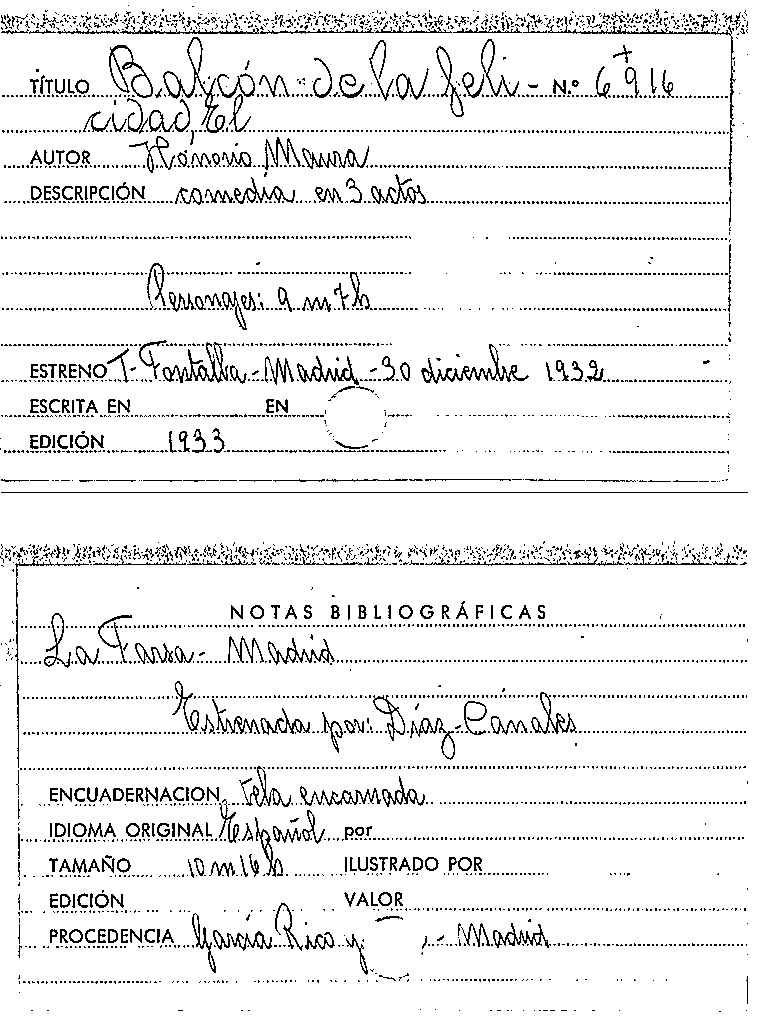 TÍTULO Balcón de la feli- N.º 6+916
cidad, El
AUTOR Honorio Maura
DESCRIPCIÓN comedia en 3 actos
Personajes: 9 m 7 h
ESTRENO T. Fontalba - Madrid - 30 diciembre 1932
ESCRITA EN EN
EDICIÓN 1933
NOTAS BIBLIOGRÁFICAS
La Farsa - Madrid
Estrenada por: Díaz-Cánales
ENCUADERNACION Tela encarnada
IDIOMA ORIGINAL Español por
TAMAÑO 10 m 16 h ILUSTRADO POR
EDICIÓN VALOR
PROCEDENCIA García Rico y - Madrid